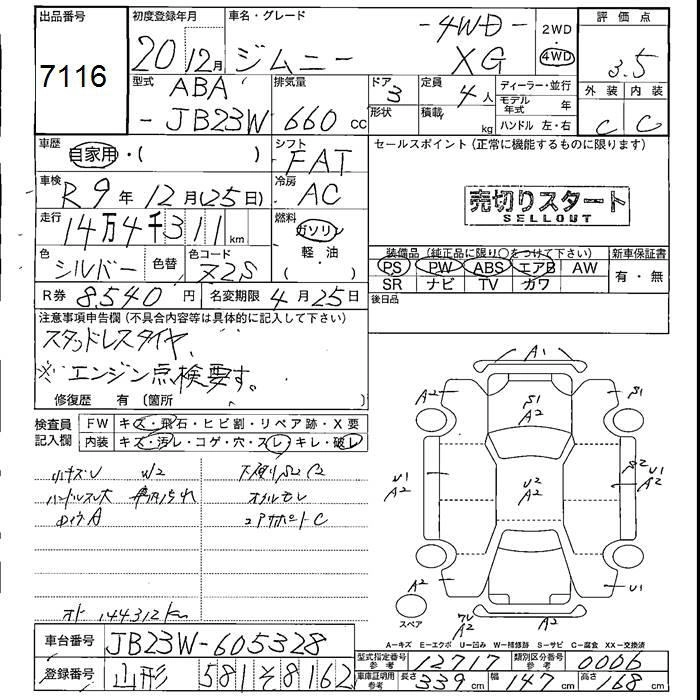 出品番号
7116
初度登録年月
20 12月
車名・グレード
ジムニー
-4WD-
XG
2WD
・
4WD
評価点
3.5
外装 内装
C C
型式
ABA
-JB23W
排気量
660 cc
ドア
3
形状
定員
4人
積載
kg
ディーラー・並行
モデル年式 年
ハンドル 左・右
車歴
自家用・( )
シフト
FAT
車検
R9年12月(25日)
冷房
AC
走行
14万4千311km
燃料
ガソリン
軽・油
色
シルバー
色替
色コード
Z2S
R券 8,540円
名変期限 4月25日
セールスポイント(正常に機能するものに限ります)
売切りスタート
SELLOUT
装備品(純正品に限り○をつけて下さい)
新車保証書
PS PW ABS エアB AW
SR ナビ TV カワ
有・無
後日品
注意事項申告欄(不具合内容等は具体的に記入して下さい)
スタッドレスタイヤ
※エンジン点検要す。
修復歴 有〔箇所 〕
検査員記入欄
FW キズ・飛石・ヒビ割・リペア跡・X要
内装 キズ・汚レ・コゲ・穴・スレ・キレ・破レ
小キズU W2
ハンドルスレ大
下廻りS2C2
オイルモレ
コアサポートC
オド 144312km
A1
A2
S1
A2
S1
U1
A2
U2
A2
S2
U1
A2
A2
A2
U1
スペア
A-キズ E-エクボ U-凹み W-補修跡 S-サビ C-腐食 XX-交換済
車台番号 JB23W-605328
登録番号 山形 581 そ 8162
型式指定番号 参考 12717
類別区分番号 参考 0006
車庫証明用 参考 長さ 339cm 幅 147cm 高さ 168cm